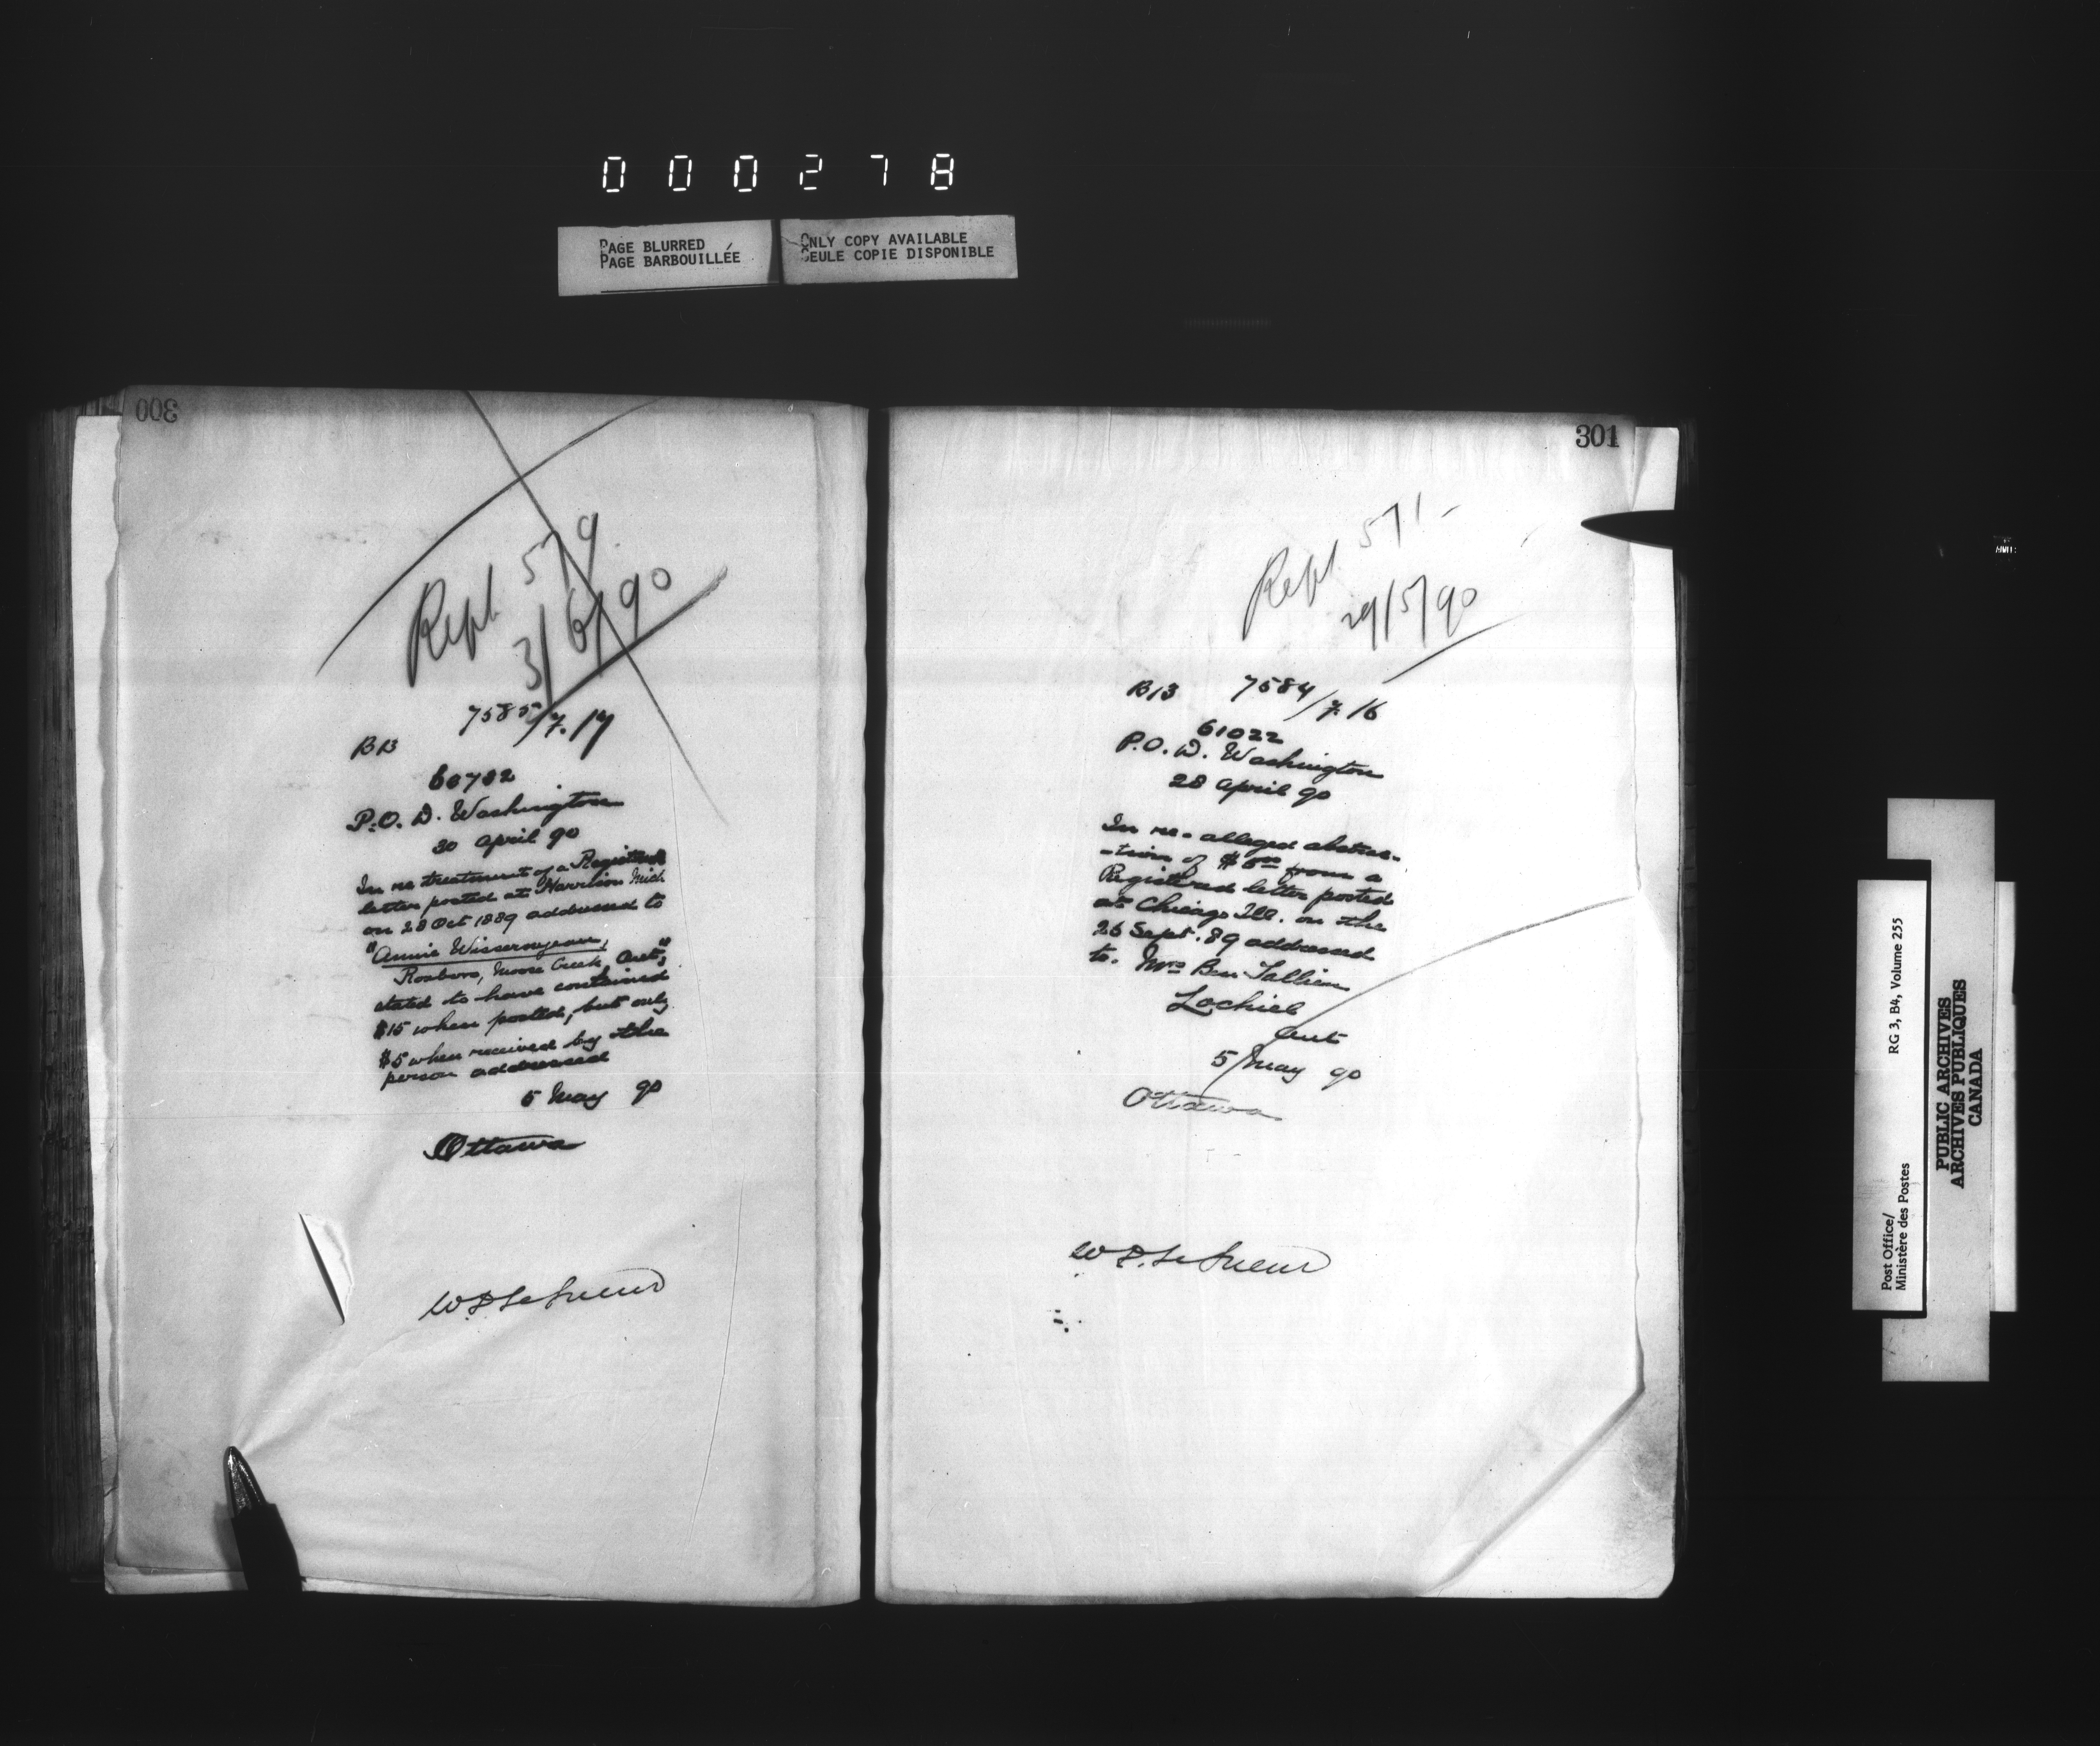 000278
PAGE BLURRED
PAGE BARBOUILLÉE
ONLY COPY AVAILABLE
SEULE COPIE DISPONIBLE
300
Rept. 579
3/6/90
7585/7.17
B13
60782
P.O.D. Washington
30 April 90
In re treatment of a Registered
letter posted at Harrison Mich
on 28 Oct 1889 addressed to
"Annie
Roxboro, Moose Creek, Ont,"
stated to have contained
$15 when posted, but only
$5 when received by the
person addressed
5 May 90
Ottawa
W.D. LeSueur
301
Rept. 571-
29/5/90
B13 7584/7.16
61022
P.O.D. Washington
28 April 90
In re- alleged abstrac-
-tion of from a
Registered letter posted
at Chicago Ill. on the
26 Sept. 89 addressed
to. Mrs Ben
Lochiel
Ont
5 May 90
Ottawa
W.D. LeSueur
Post Office/
Ministère des Postes
RG 3, B4, Volume 255
PUBLIC ARCHIVES
ARCHIVES PUBLIQUES
CANADA